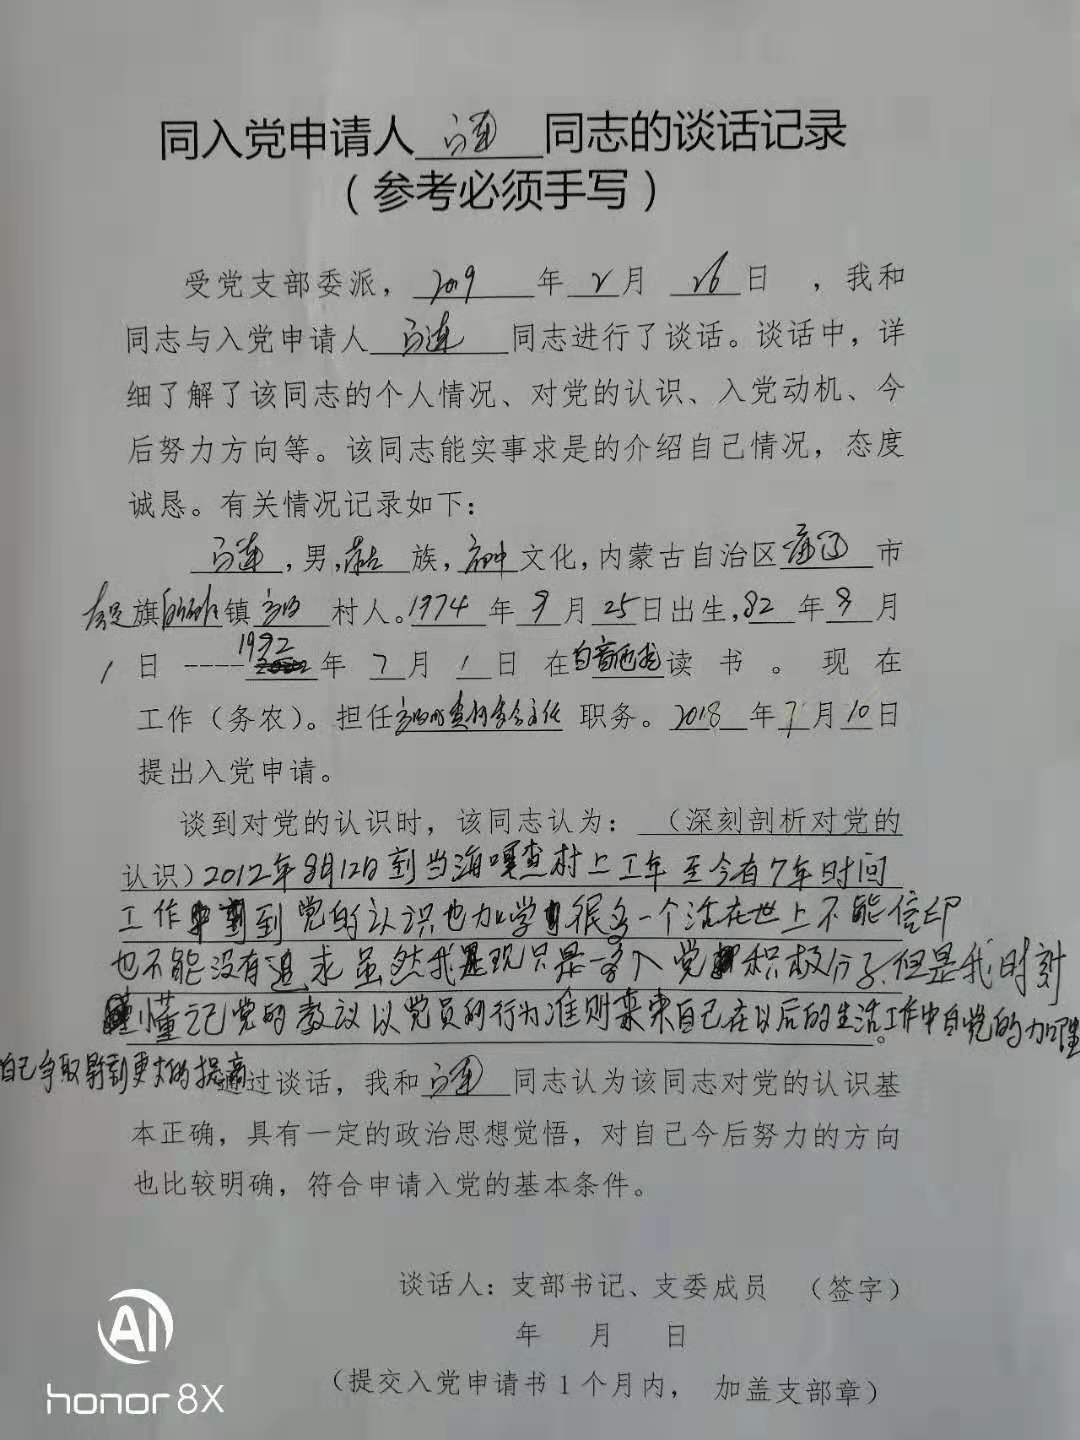 同入党申请人 同志的谈话记录
（参考必须手写）
受党支部委派，2019年2月26日，我和
同志与入党申请人 同志进行了谈话。谈话中，详
细了解了该同志的个人情况、对党的认识、入党动机、今
后努力方向等。该同志能实事求是的介绍自己情况，态度
诚恳。有关情况记录如下：
，男， 族， 文化，内蒙古自治区通辽市
旗 镇 村人。1974年9月25日出生，82年8月
1日----1992年7月1日在 读书。现在
工作（务农）。担任 职务。2018年7月10日
提出入党申请。
谈到对党的认识时，该同志认为：（深刻剖析对党的
认识）2012年8月12日到当海嘎查村上工年至今有7年时间
工作 到党的认识也加学 很多一个活在世上不能信印
也不能没有追求虽然我 现只是一名入党 积极分子.但是我时刻
懂记党的教议以党员的行为准则来来自己在以后的生活工作中自党的加理
自己争取 到更大的提高
通过谈话，我和 同志认为该同志对党的认识基
本正确，具有一定的政治思想觉悟，对自己今后努力的方向
也比较明确，符合申请入党的基本条件。
谈话人：支部书记、支委成员 （签字）
年 月 日
（提交入党申请书1个月内， 加盖支部章）
AI
honor 8X